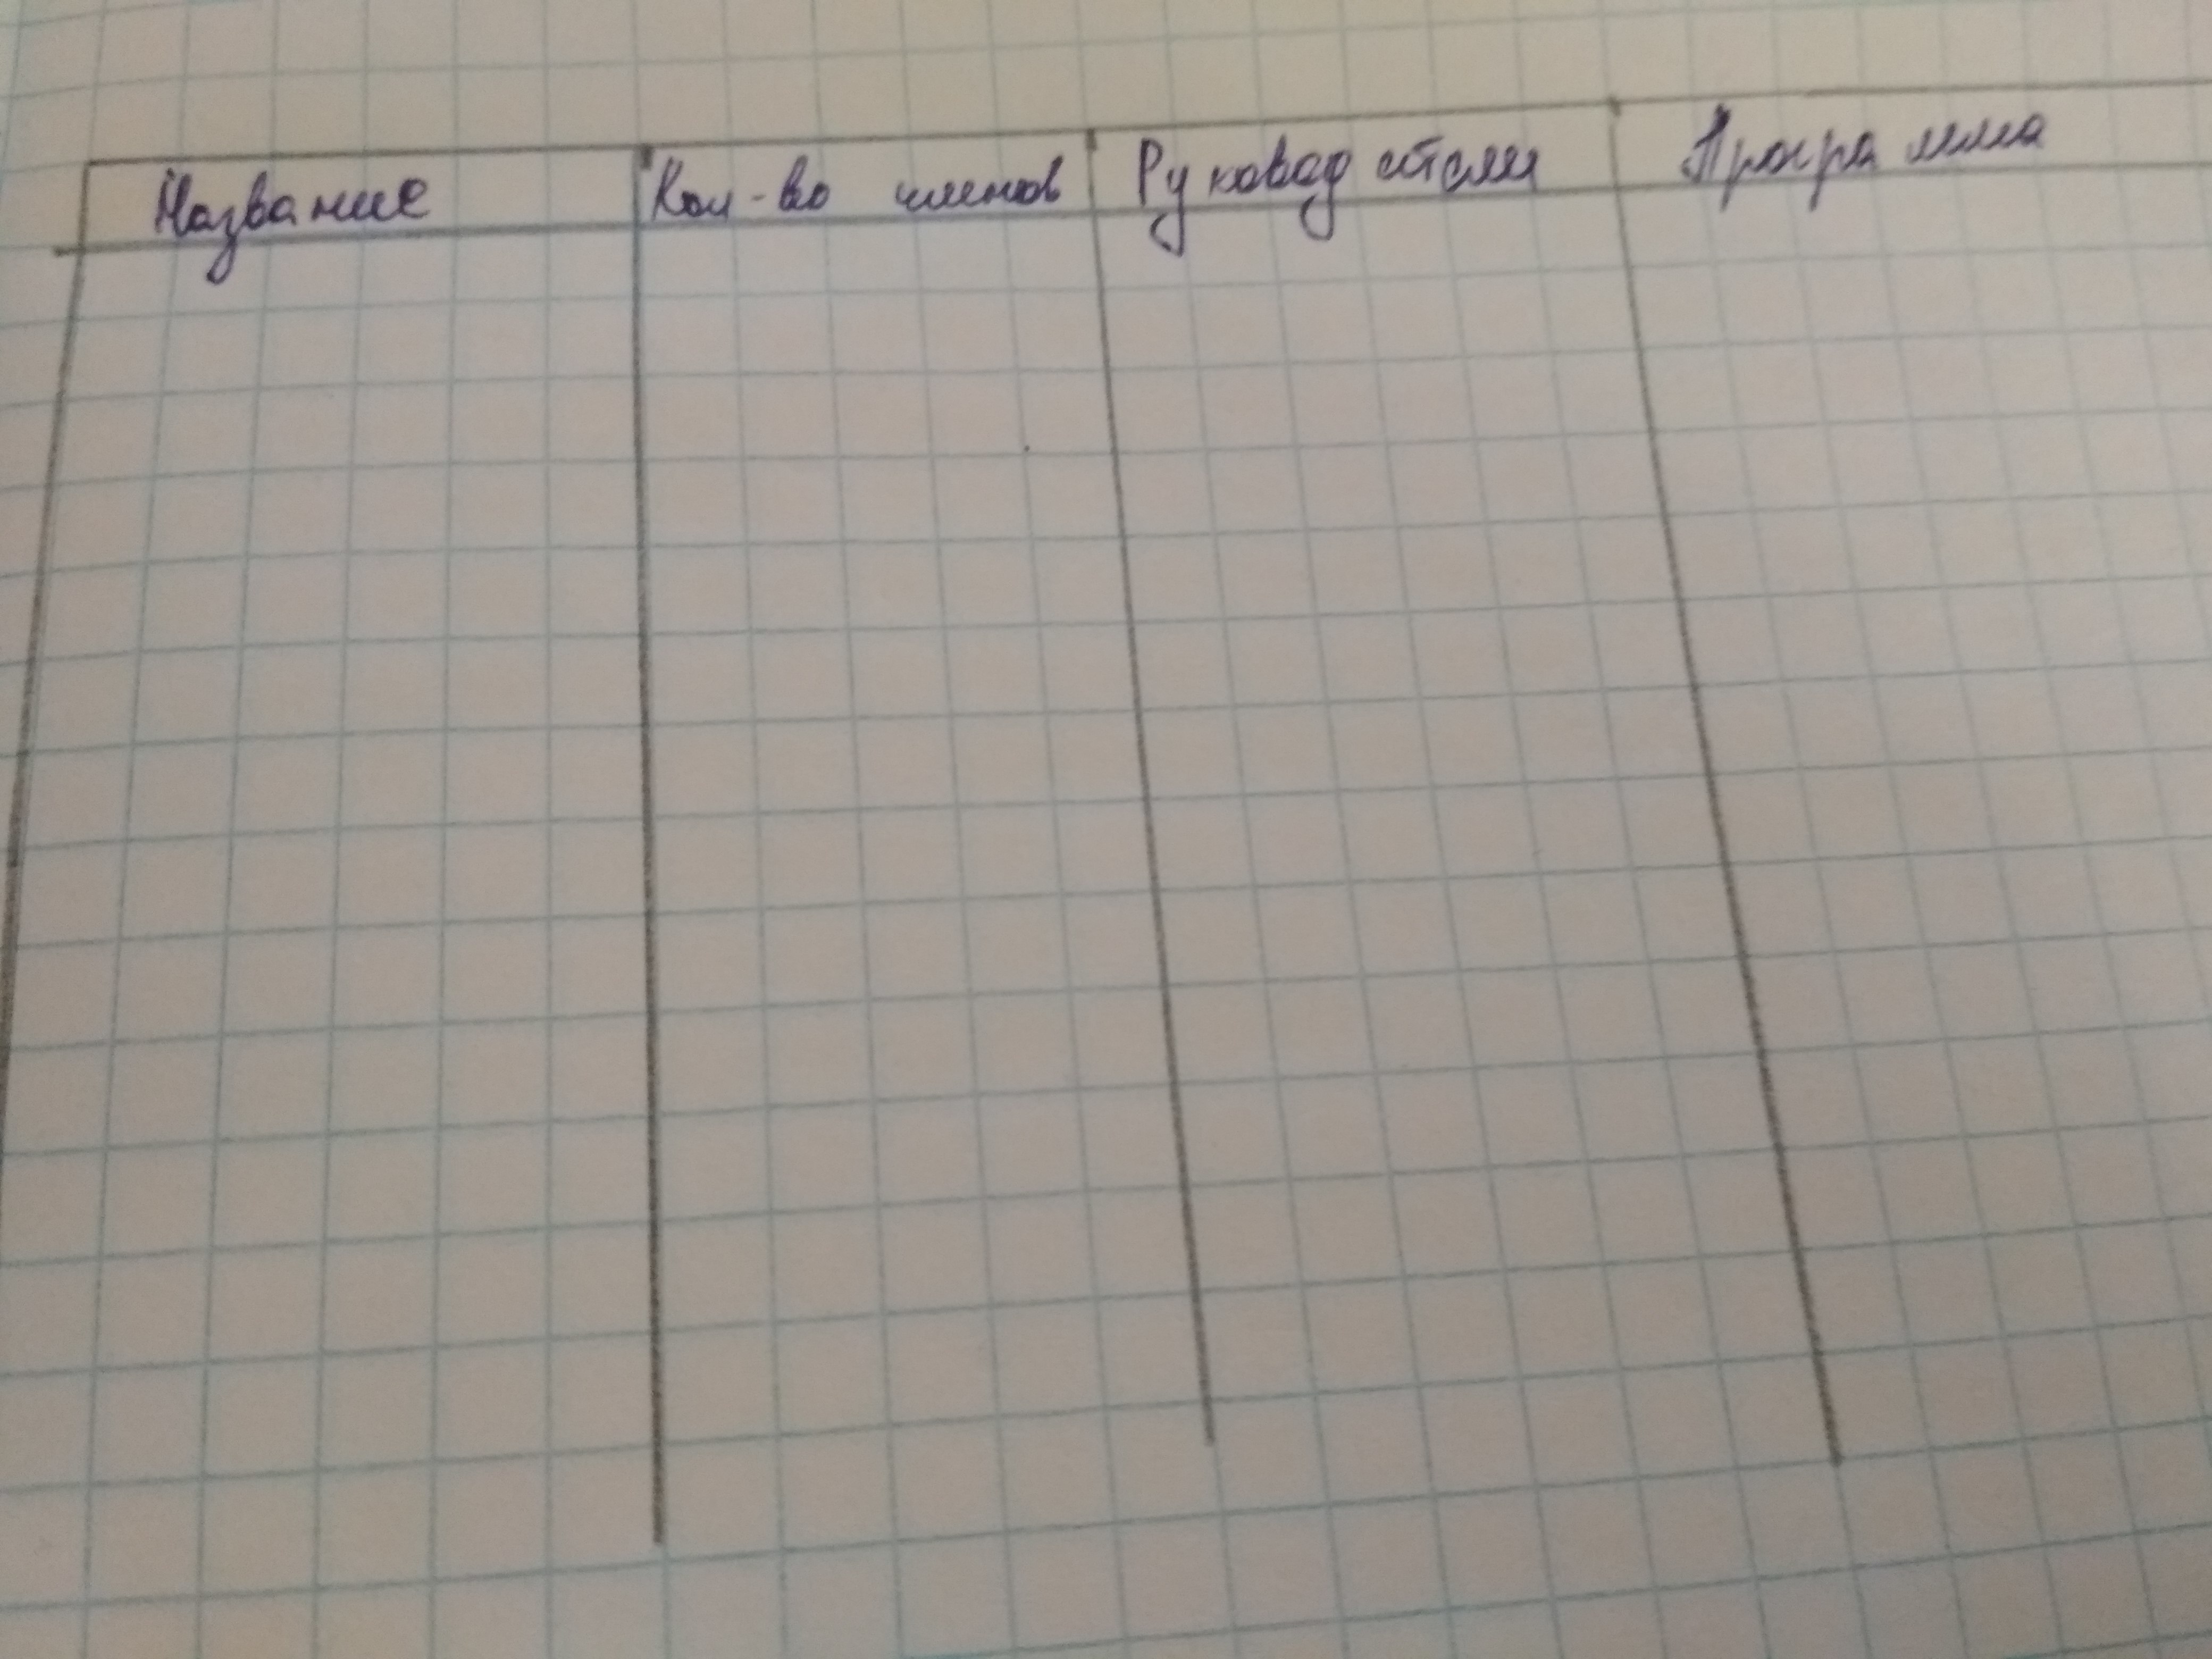 Название Кол-во членов Руковадители Программа